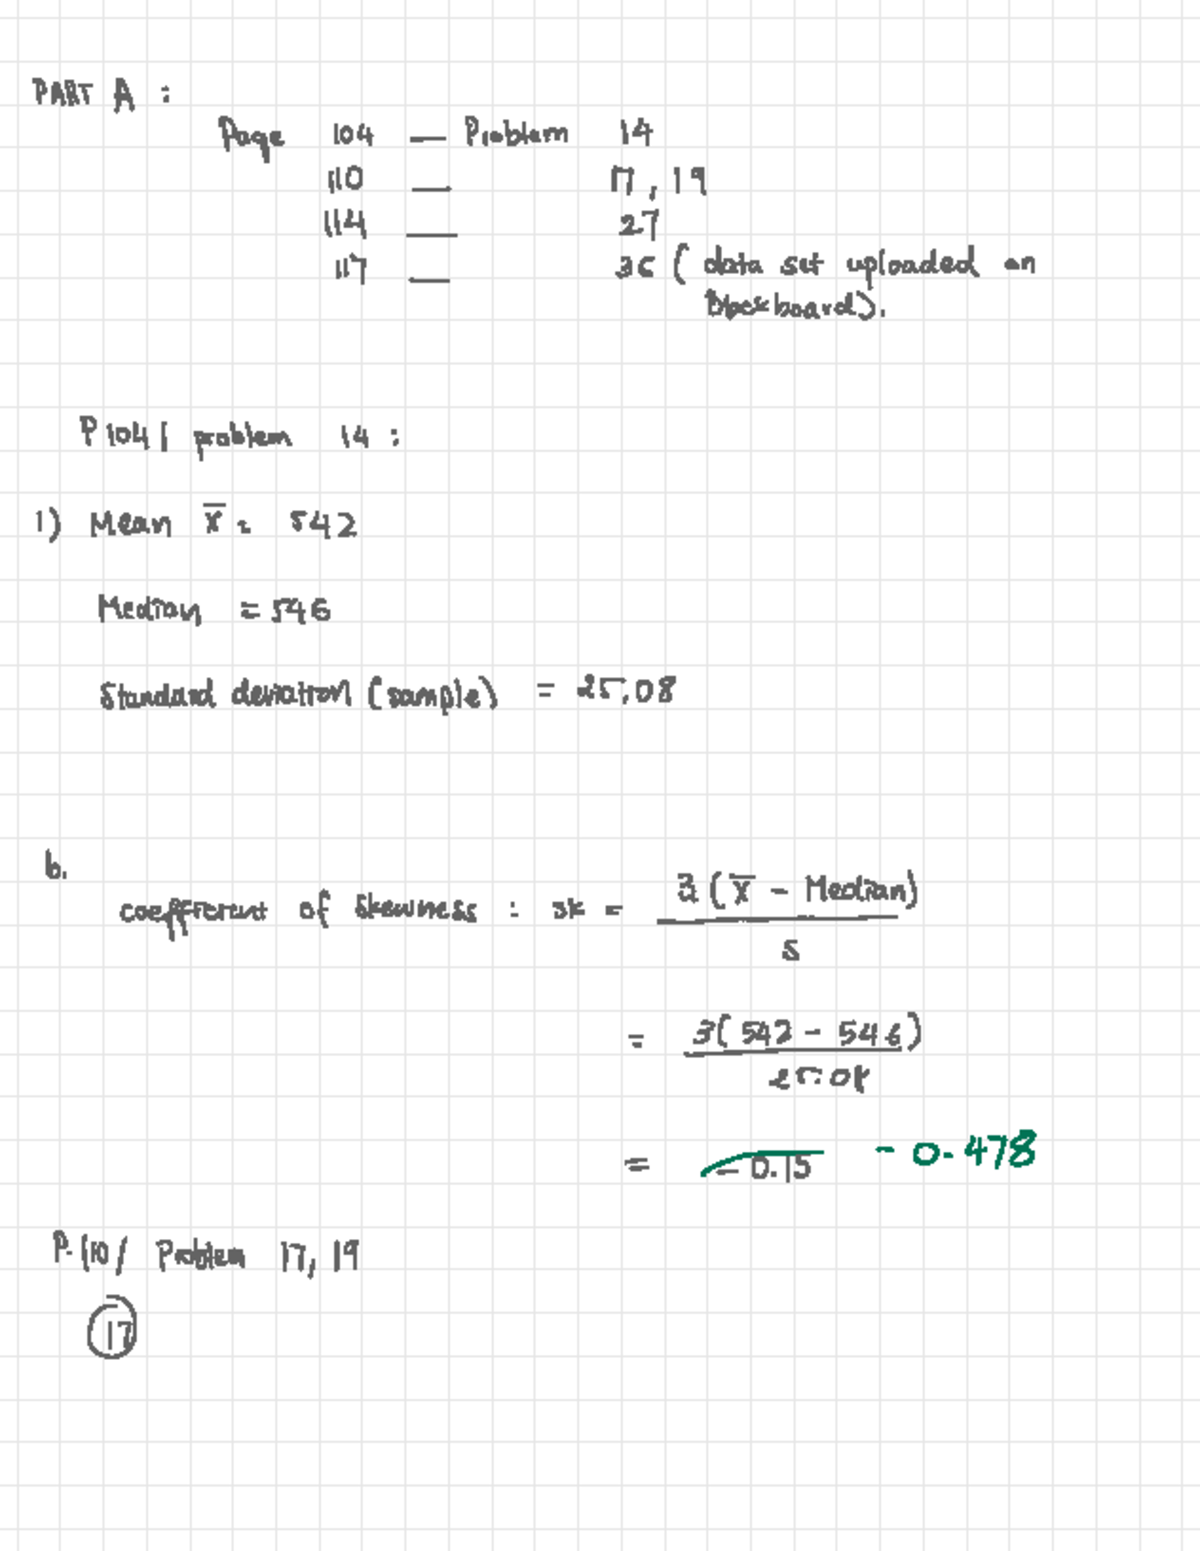 PART A :
Page 104 — Problem 14
110 — 17, 19
114 — 27
117 — 36 ( data set uploaded on
Blackboard).
P 104 / problem 14 :
1) Mean x̄ = 542
Median = 546
Standard deviation (sample) = 25.08
b.
coefficient of skewness : sk = 3 ( x̄ - Median)
s
= 3( 542 - 546 )
25.08
= - 0.15 - 0.478
P. 110 / Problem 17, 19
17